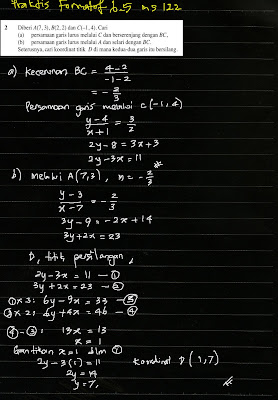 Praktis Formatif 6.5 m.s 122
2 Diberi A(7, 3), B(2, 2) dan C(-1, 4). Cari
(a) persamaan garis lurus melalui C dan berserenjang dengan BC,
(b) persamaan garis lurus melalui A dan selari dengan BC.
Seterusnya, cari koordinat titik D di mana kedua-dua garis itu bersilang.
a) Kecerunan BC = 4-2 / -1-2
= -2/3
Persamaan garis melalui C(-1,4)
y-4 / x+1 = 3/2
2y-8 = 3x+3
2y-3x = 11
b) Melalui A(7,3), m = -2/3
y-3 / x-7 = -2/3
3y-9 = -2x+14
3y+2x = 23
D, titik persilangan,
2y-3x = 11 - ①
3y+2x = 23 - ②
①×3: 6y-9x = 33 - ③
②×2: 6y+4x = 46 - ④
④-③: 13x = 13
x = 1
Gantikan x=1 dlm ①
2y-3(1) = 11
2y = 14
y = 7,
Koordinat D (1,7)